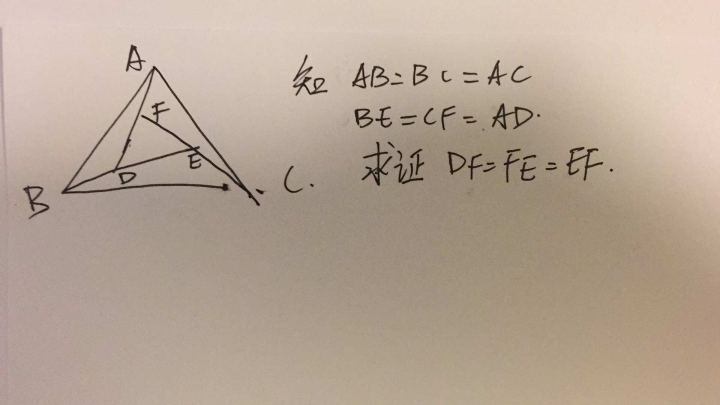 A
F
E
D
B
C.
知 AB=BC=AC
BE=CF=AD.
求证 DF=FE=EF.